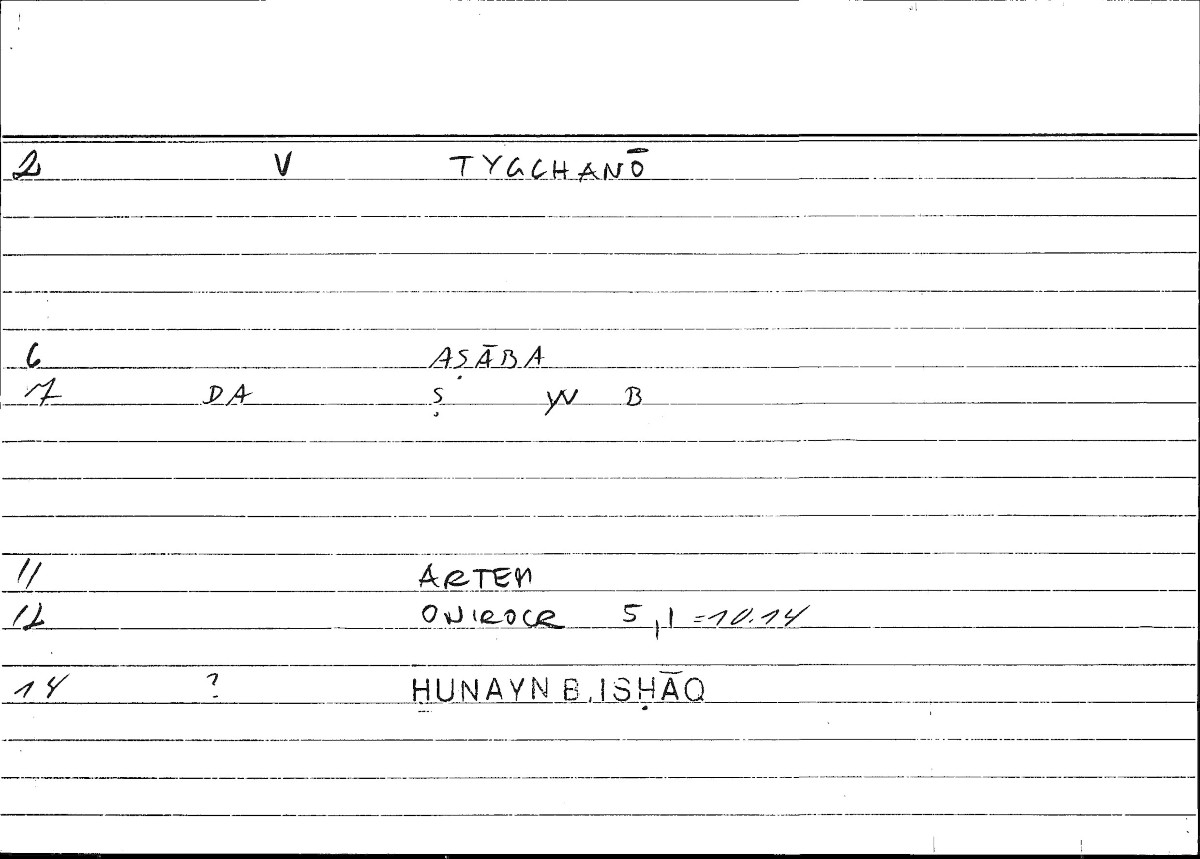 2 V TYGCHANŌ
6 AṢĀBA
7 DA Ṣ YV B
11 ARTEM
12 ONIROCR 5,1 =10.14
14 ? ḤUNAYN B. ISḤĀQ